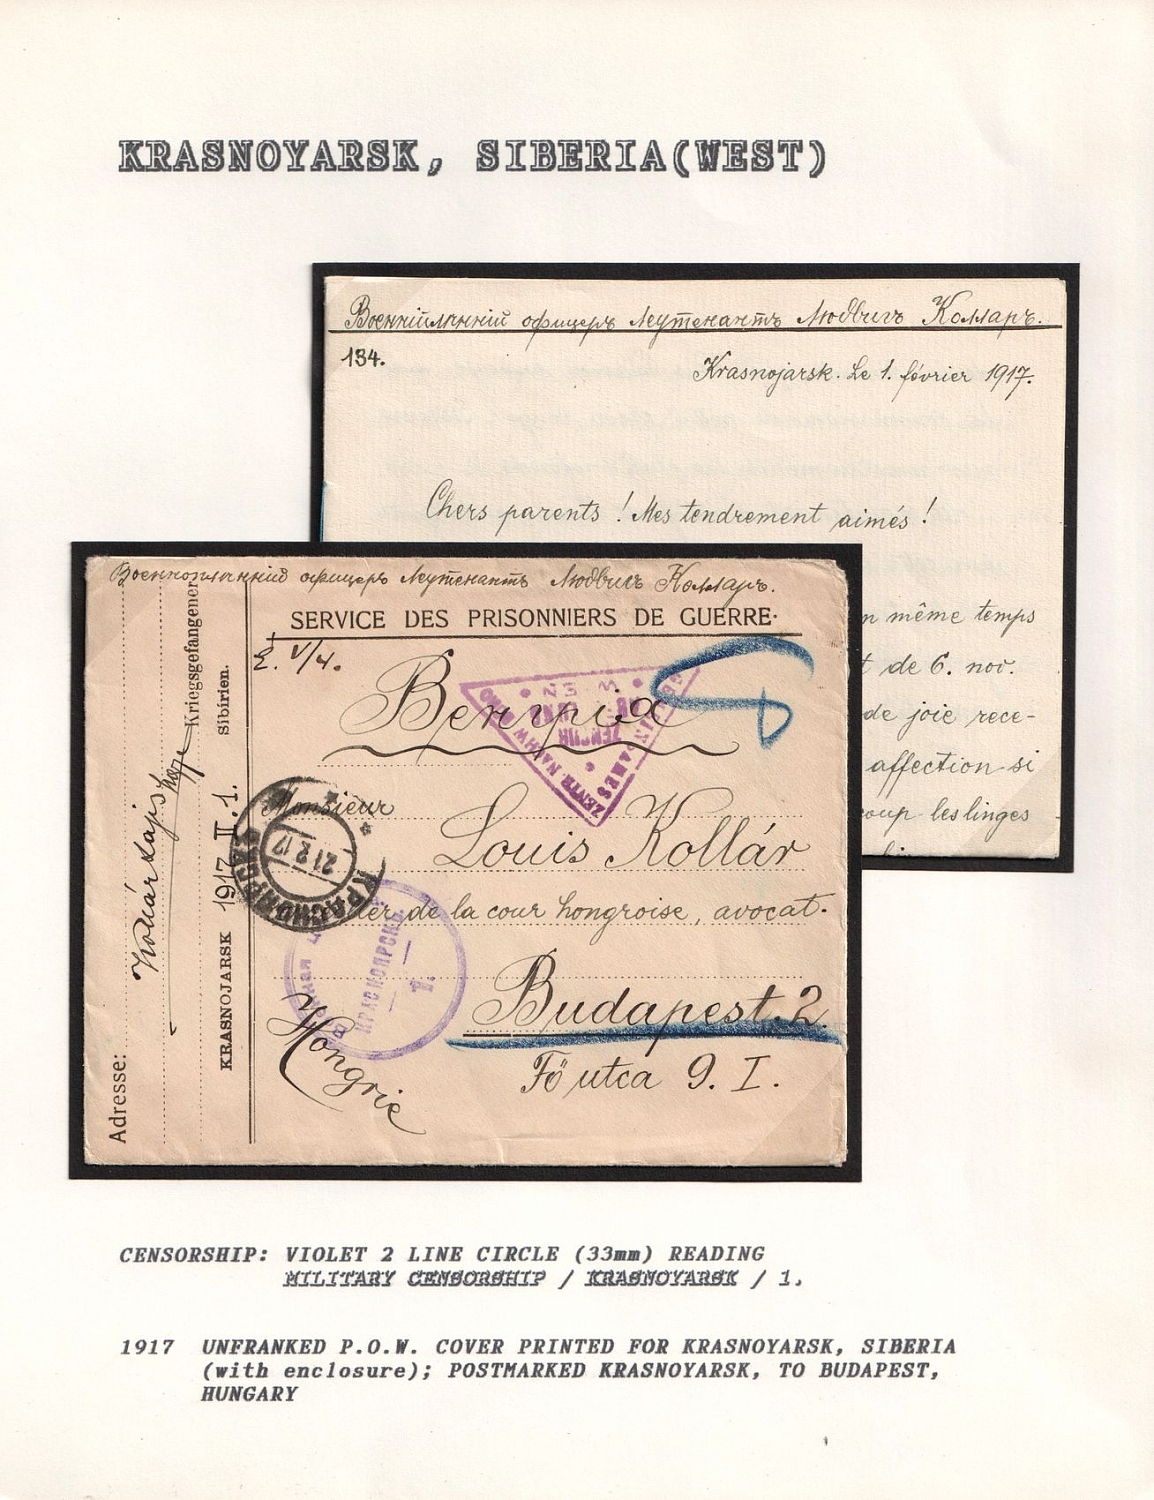 KRASNOYARSK, SIBERIA(WEST)
офицеръ Леутенантъ Людвигъ Колларъ.
134.
Krasnojarsk. Le 1. février 1917.
Chers parents ! Mes tendrement aimés !
n même temps
t de 6. nov.
de joie rece-
affection si
coup les linges
офицеръ Леутенантъ Людвигъ Колларъ.
SERVICE DES PRISONNIERS DE GUERRE.
Венгрия
Monsieur
Louis Kollár
de la cour hongroise, avocat.
Budapest. 2.
Fő utca 9. I.
Hongrie
Adresse:
Kollár Lajos
Kriegsgefangener
KRASNOJARSK 1917 II. 1. Sibirien.
КРАСНОЯРСК
21 2 17
КРАСНОЯРСКЪ
1.
CENSORSHIP: VIOLET 2 LINE CIRCLE (33mm) READING
MILITARY CENSORSHIP / KRASNOYARSK / 1.
1917 UNFRANKED P.O.W. COVER PRINTED FOR KRASNOYARSK, SIBERIA
(with enclosure); POSTMARKED KRASNOYARSK, TO BUDAPEST,
HUNGARY